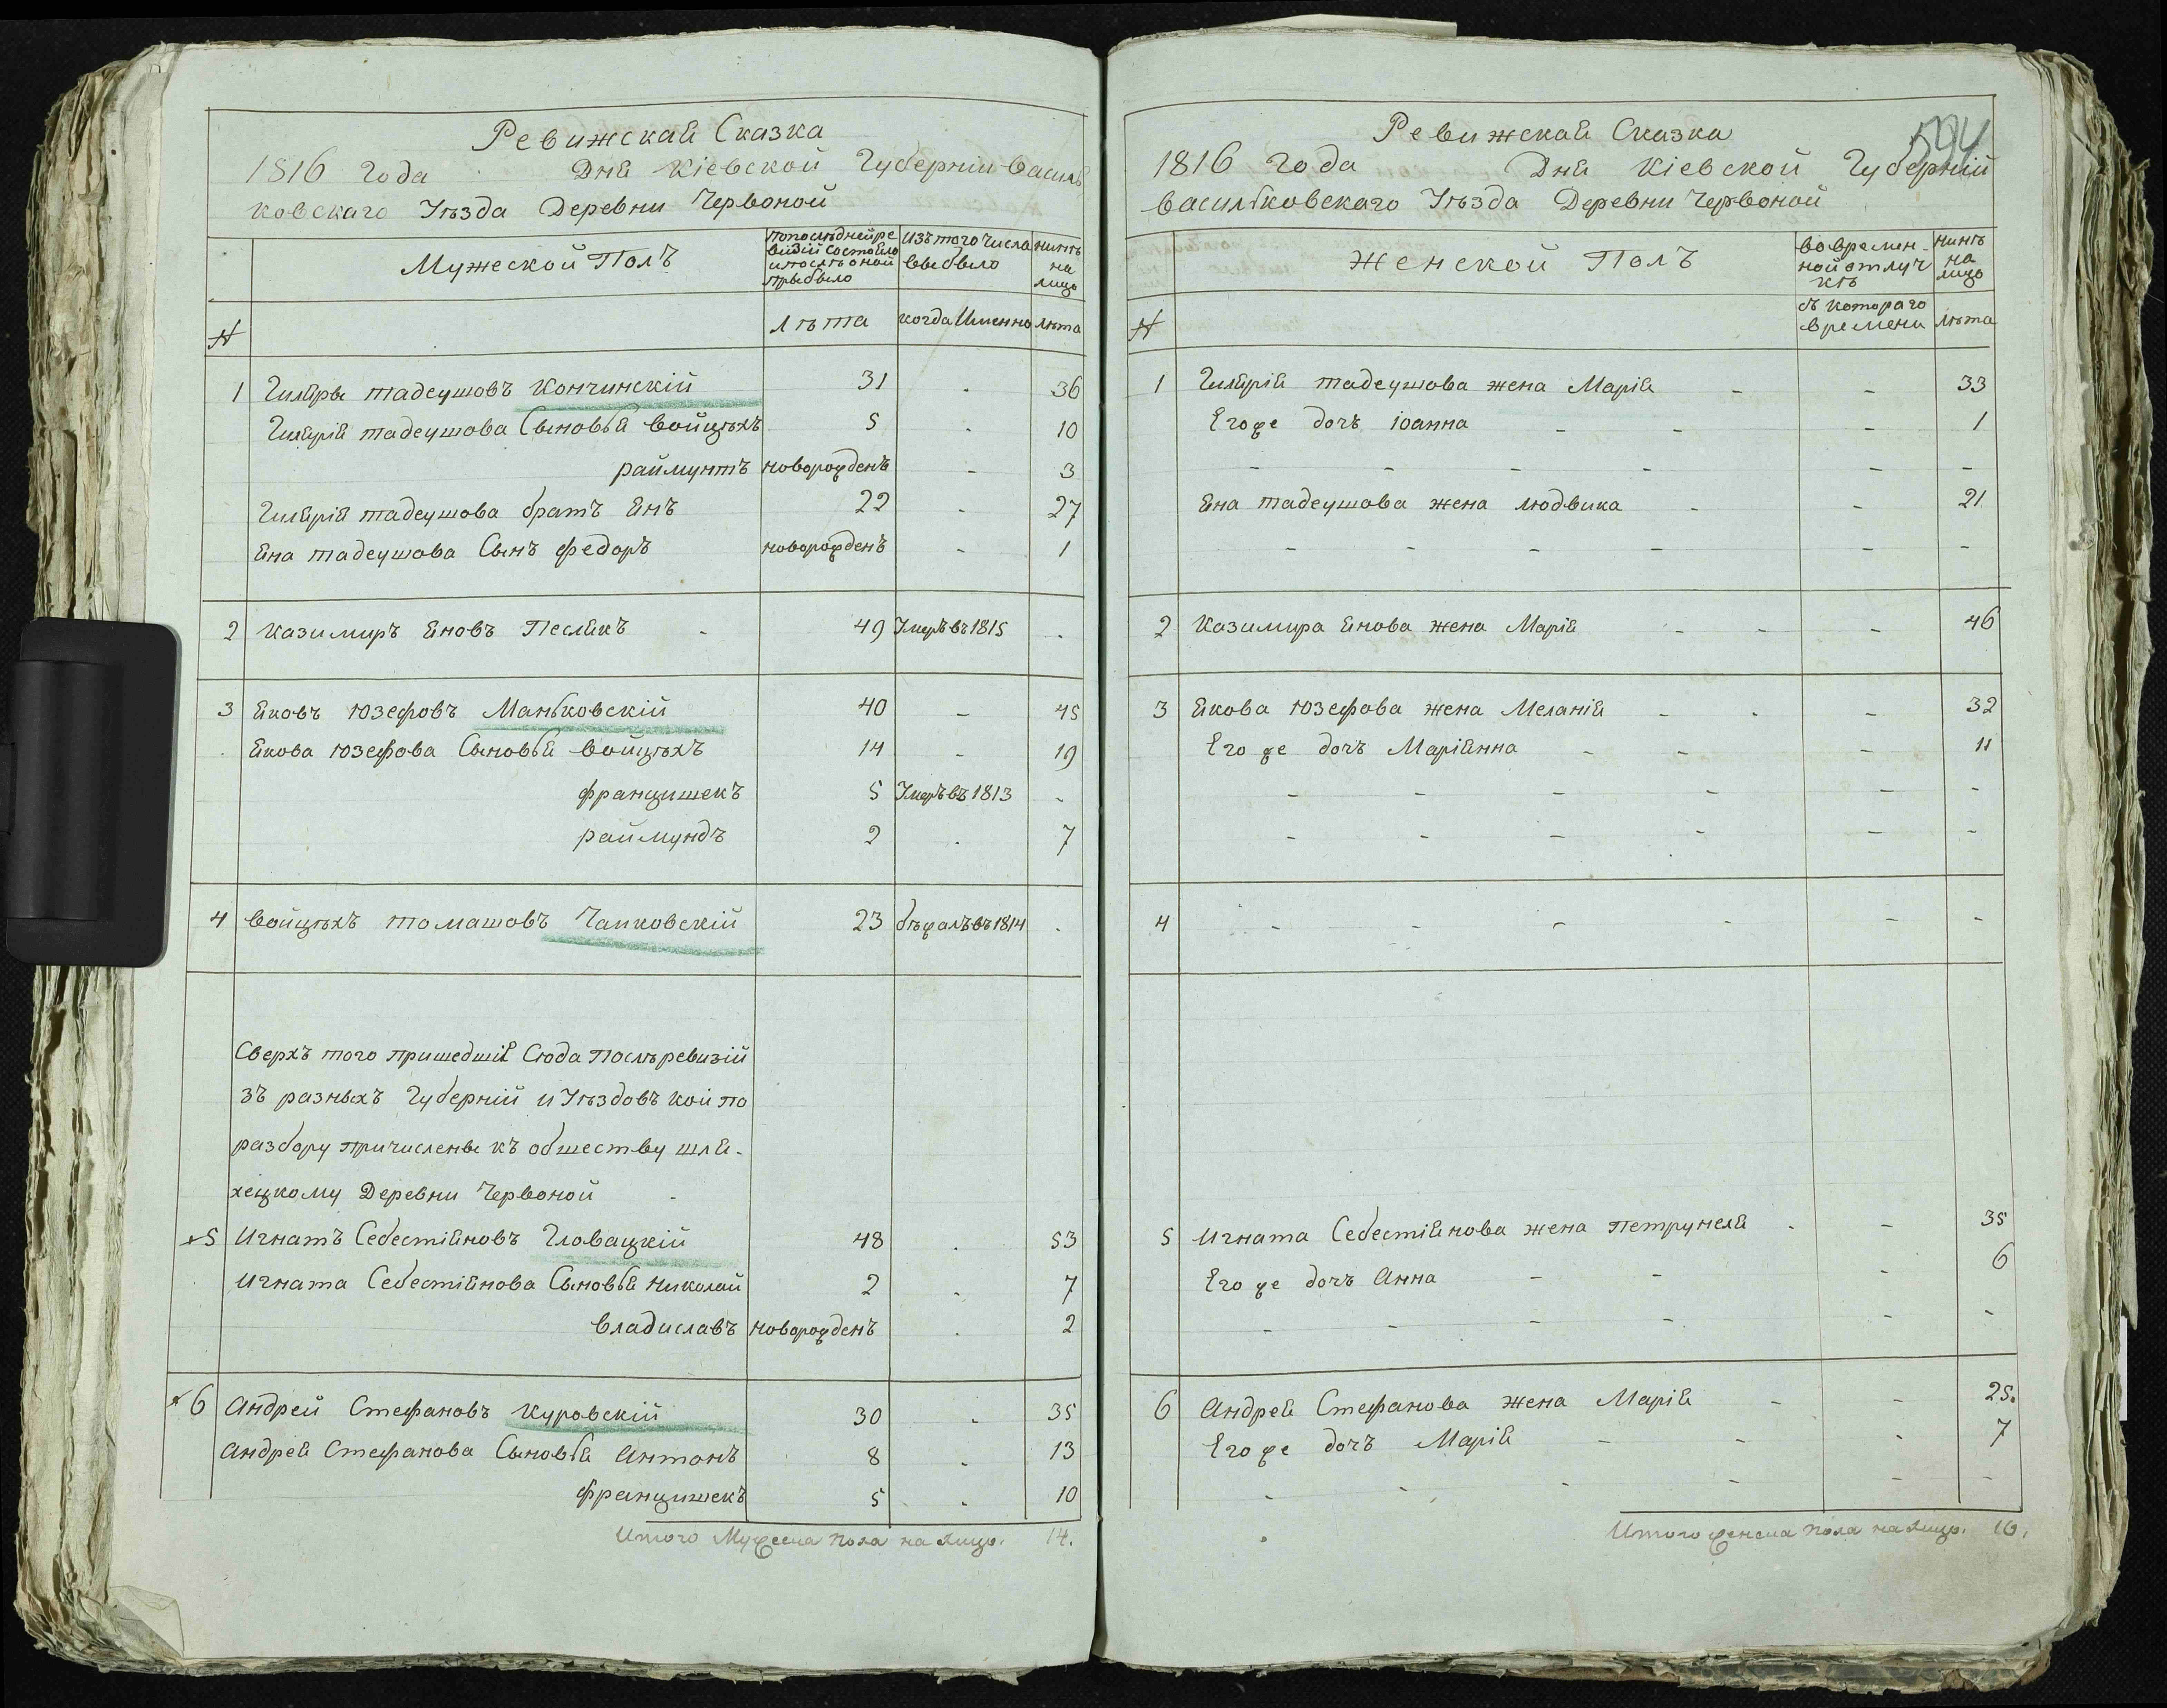 Ревижская Сказка
1816 года Дня Кіевской Губерніи Василь
ковскаго Уѣзда Деревни Червоной
Мужеской Полъ
попослѣднейре
визіи состояло
ипослѣ оной
прыбыло
изъ того числа
выбыло
нинѣ
на
лицо
№
лѣта
когда Именно
лѣта
1 Гиляры тадеушовъ Кончинскій 31 - 36
Гилярія тадеушова Сыновья войцѣхъ 5 - 10
раймунтъ новорожденъ - 3
Гилярія тадеушова братъ Янъ 22 - 27
Яна тадеушова Сынъ федоръ новорожденъ - 1
2 казимиръ Яновъ Песлякъ - 49 Умеръ въ 1815 -
3 Яковъ юзефовъ Маньковскій 40 - 45
Якова юзефова Сыновья войцѣхъ 14 - 19
францишекъ 5 Умеръ въ 1813 -
раймундъ 2 - 7
4 войцѣхъ томашовъ Чапковскій 23 бѣжалъ въ 1814 -
Сверхъ того пришедшія Сюда послѣ ревизій
зъ разныхъ Губерній и Уѣздовъ кои по
разбору причислены къ обшеству шля-
хецкому Деревни Червоной -
5 Игнатъ Себестіяновъ Гловацкій 48 - 53
Игната Себестіянова Сыновья николай 2 - 7
владиславъ новорожденъ - 2
6 Андрей Стефановъ Куровскій 30 - 35
Андрея Стефанова Сыновья Антонъ 8 - 13
францишекъ 5 - 10
Итого Мужеска пола на лицо. 14.
594
Ревижская Сказка
1816 года Дня Кіевской Губерній
васильковскаго Уѣзда Деревни Червоной
Женской Полъ
вовремен-
ной отлуч
кѣ
нинѣ
на
лицо
№
съ котораго
времени
лѣта
1 Гилярія тадеушова жена Марія - - 33
Егоже дочъ іоанна - - - 1
- - - - - -
Яна тадеушова жена людвика - - 21
- - - - - -
2 Казимира Янова жена Марія - - - 46
3 Якова юзефова жена Меланія - - - 32
Его же дочъ Маріянна - - - 11
- - - - - -
- - - - - -
4 - - - - - -
5 Игната Себестіянова жена петрунеля - - 35
Его же дочъ Анна - - - 6
- - - - - -
6 Андрея Стефанова жена Марія - - 25.
Его же дочъ Марія - - - 7
- - - - - -
Итого женска пола на лицо. 10.